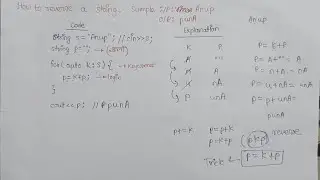 How to reverse a string. Sample I/P: Anup
O/P: punA
Code
string s="Anup"; //cin>>s;
string p="";
for(auto k:s){
p=k+p; → logic
}
cout<<p; // punA
Explanation
K
A
n
u
p
A
nA
unA
Anup
P=k+p
P=n+A=nA
P=u+nA=
unA
P=p+unA=
punA
p+=k
p=p+k
p=k+p
(p+k)
reverse
Trick
p=k+p